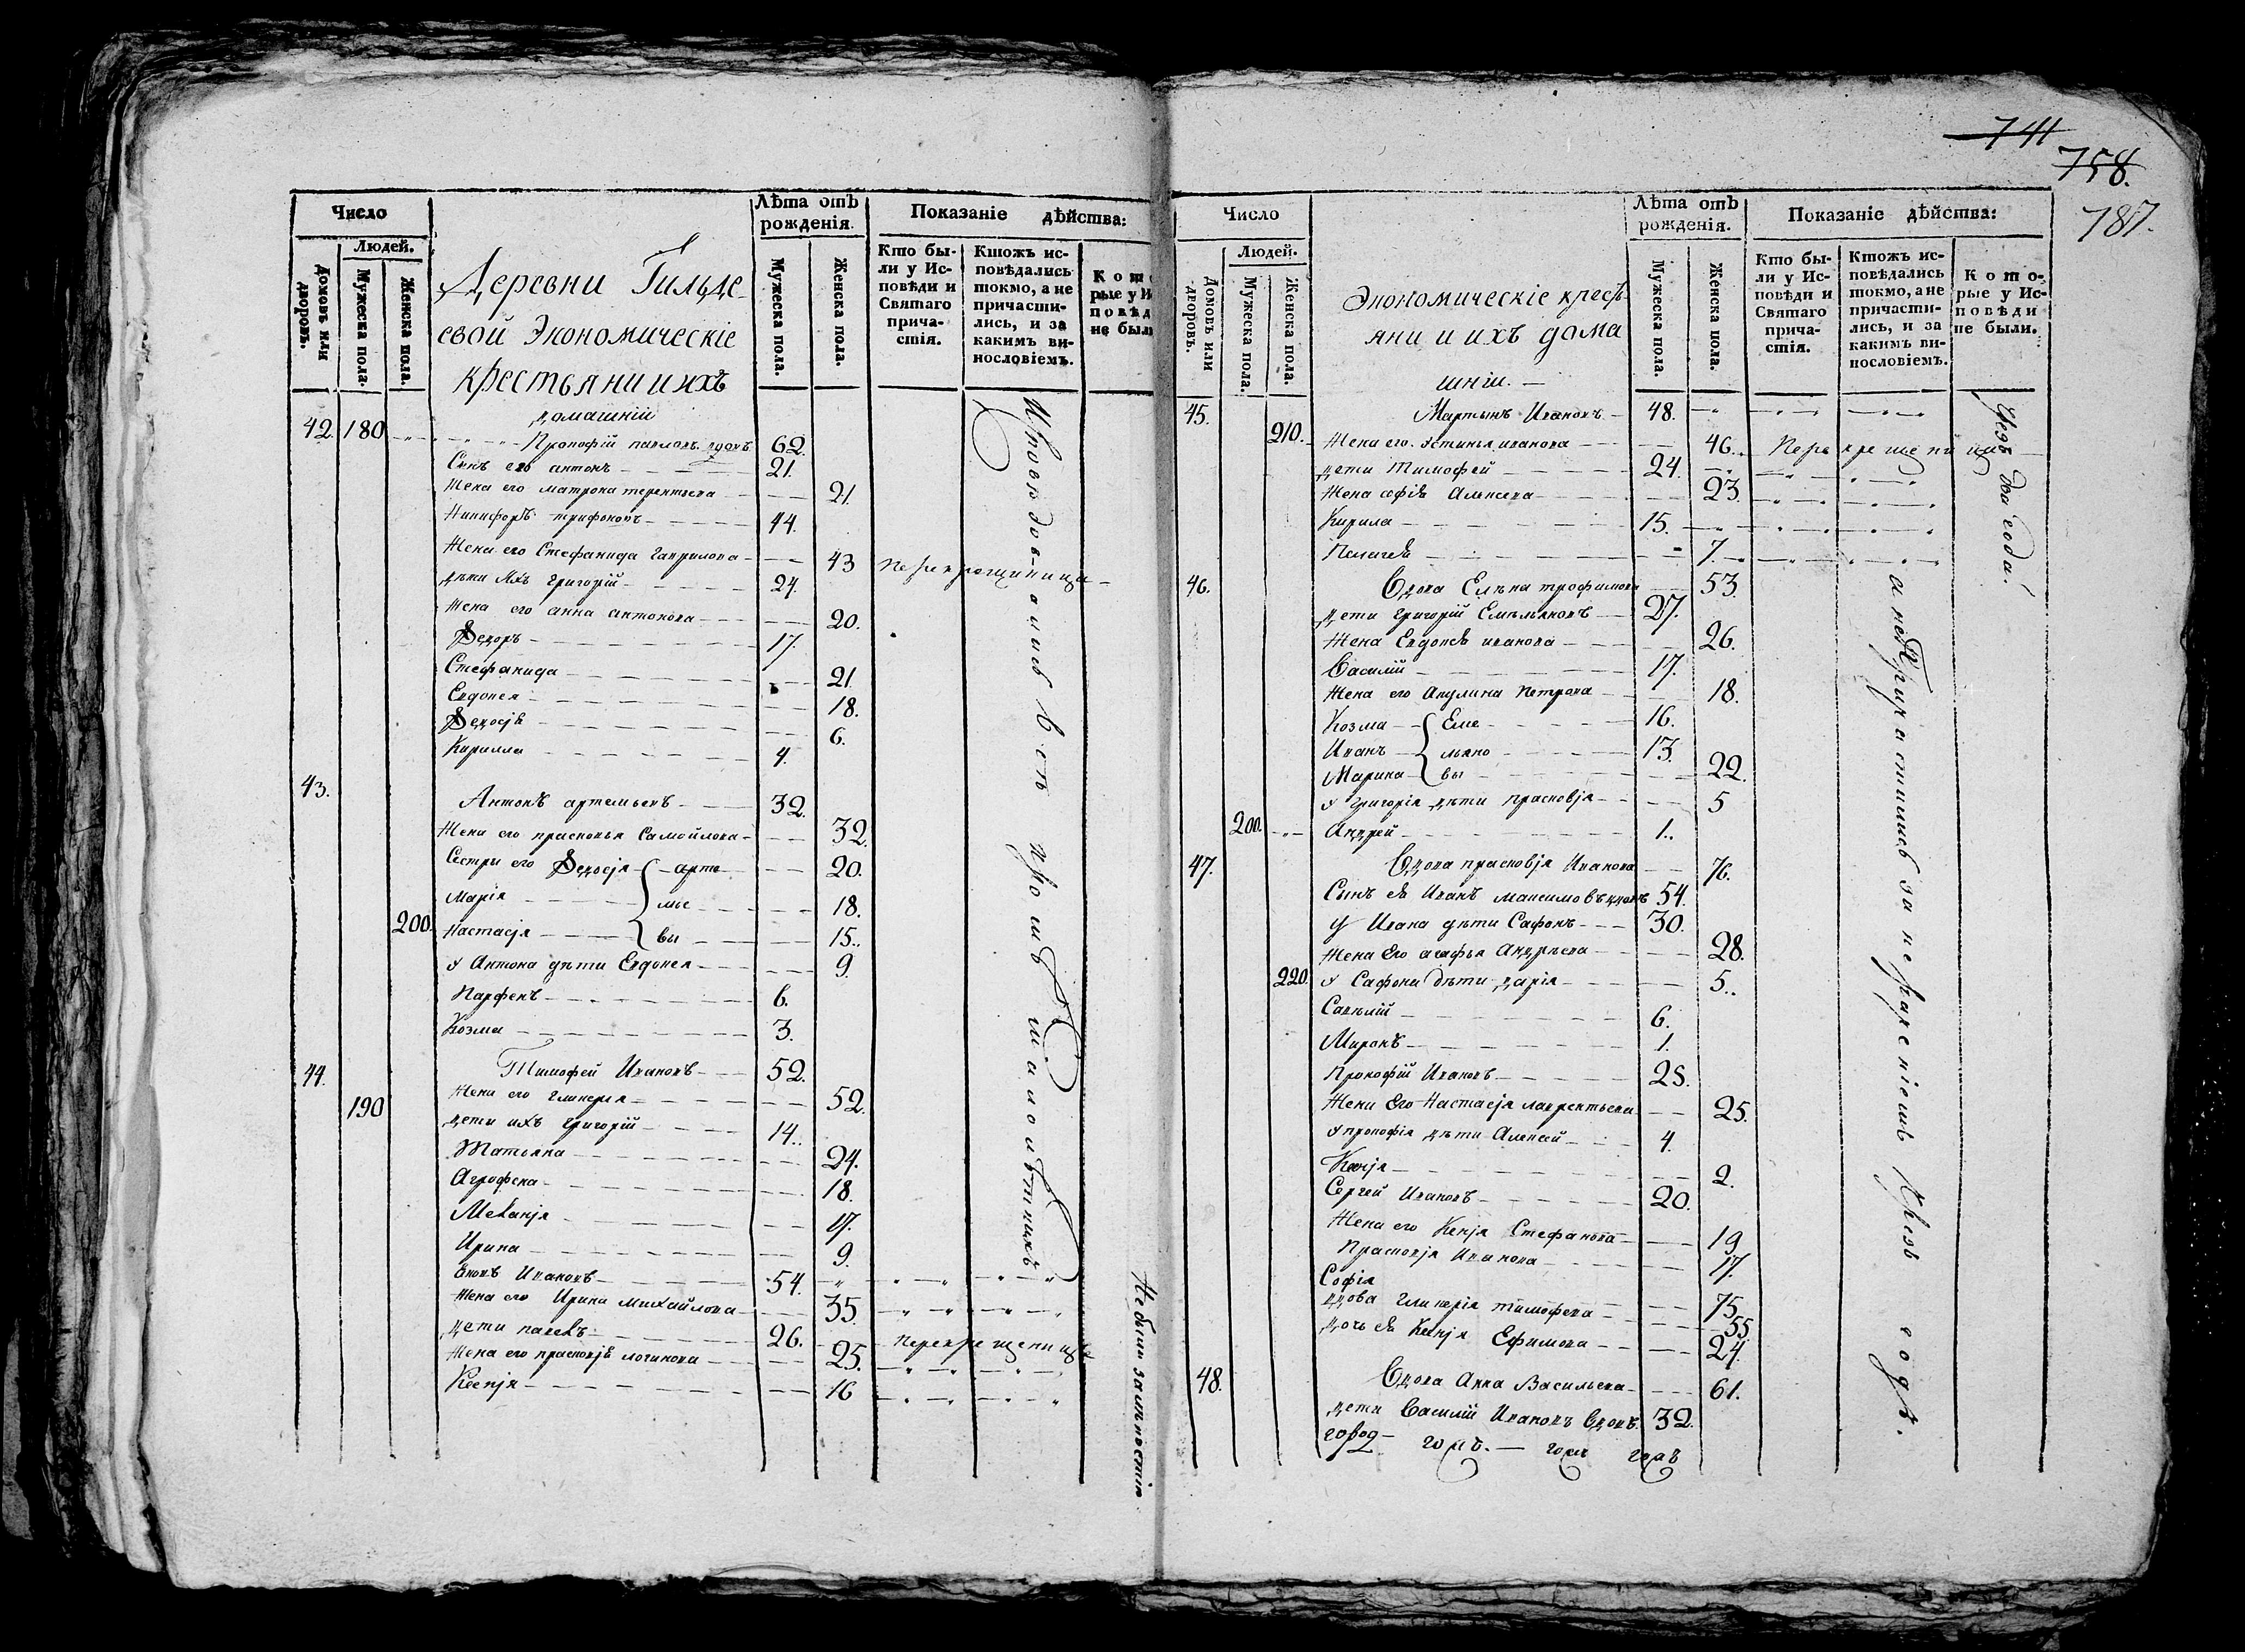 Число
Людей.
Домовъ или дворовъ.
Мужеска пола.
Женска пола.
Деревни Гильде-
евой Экономическіе
крестьяни ихъ
домашніи
Лѣта отъ рожденія.
Мужеска пола.
Женска пола.
Показаніе дѣйства:
Кто бы-
ли у Ис-
повѣди и
Святаго
прича-
стія.
Ктожъ ис-
повѣдались
токмо, а не
причасти-
лись, и за
какимъ ви-
нословіемъ.
42. 180 Прокофій павловъ вдовъ 62.
Сынъ его антонъ 21.
Жена его матрона терентьева 21.
Никифоръ трифоновъ 44.
Жена его Стефанида Гаврилова 43
дѣти ихъ григорій 24.
Жена его анна антонова 20.
Ѳедоръ 17.
Стефанида 21
Евдокея 18.
Ѳедосія 6.
Кирилла 4.
43. Антонъ артемьевъ 32.
Жена его прасковья Самойлова 32.
Сестры его Ѳедосія арте 20.
Марія мье 18.
200. Настасія вы 15.
у Антона дѣти Евдокея 9.
Парфенъ 6.
Козма 3.
44. Тимофей Ивановъ 52.
190 Жена его гликерія 52.
дети ихъ григорій 14.
Татьяна 24.
Агрофена 18.
Меланія 17.
Ирина 9.
Ивановъ 54.
Жена его Ирина михайлова 35.
дети павелъ 26. перекрещенцы
Жена его прасковія логинова 25.
Ксенія 16
Не были за малостію
741
758.
787.
Число
Людей.
Домовъ или дворовъ.
Мужеска пола.
Женска пола.
Экономическіе кресть-
яни и ихъ дома
шніи.
Лѣта отъ рожденія.
Мужеска пола.
Женска пола.
Показаніе дѣйства:
Кто бы-
ли у Ис-
повѣди и
Святаго
прича-
стія.
Ктожъ ис-
повѣдались
токмо, а не
причасти-
лись, и за
какимъ ви-
нословіемъ.
Кото-
рые у Ис-
повѣди
не были.
45. Мартынъ Ивановъ 48.
210. Жена его устинья иванова 46. Перекрещенцы
дети Тимофей 24.
Жена софія Алексева 23.
Кирила 15.
Пелагея 7.
46. Вдова Елена трофимова 53.
дети григорій Емельяновъ 27.
Жена Евдокея иванова 26.
Василій 17.
Жена его Акулина Петрова 18.
Козма Еме 16.
Иванъ льяно 13.
Марина вы 22.
у григорія дѣти прасковія 5
200. Андрей 1.
47. Вдова прасковія Иванова 76.
Сынъ ея Иванъ максимовъ вдовъ 54.
У Ивана дѣти Сафонъ 30.
Жена Его агафья Андрѣева 28.
220. у Сафона дѣти дарія 5.
Савелій 6.
Миронъ 1.
Прокофій Ивановъ 28.
Жена Его Настасія лаврентьева 25.
у прокофія дѣти Алексей 4.
Ксенія 2.
Сергей Ивановъ 20.
Жена его Ксенія Стефанова 19
Прасковія Иванова 17.
Софія 75
вдова гликерія тимофева 55.
дочь ея Ксенія Ефимова 24.
48. Вдова Анна Васильева 61.
дети Василій Ивановъ вдовъ. 32.
Чезъ два года.
а не Причастились за неращеніемъ Чрезъ годъ.